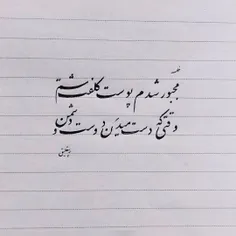 مجبور شدم پوست کلفت شم
وقتی که دست میدن دوست و دشمن